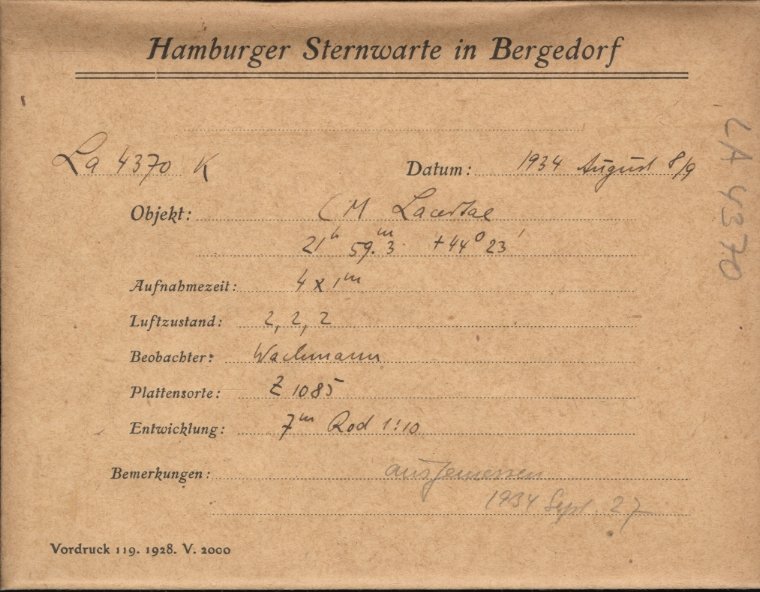 Hamburger Sternwarte in Bergedorf
La 4370 K Datum: 1934 August 8/9
Objekt: CM Lacertae
21h 59.m3 +44° 23'
Aufnahmezeit: 4 x 1m
Luftzustand: 2, 2, 2
Beobachter: Wachmann
Plattensorte: Z 1085
Entwicklung: 7m Rod 1:10
Bemerkungen: ausgemessen
1934 Sept. 27
Vordruck 119. 1928. V. 2000
LA 4370